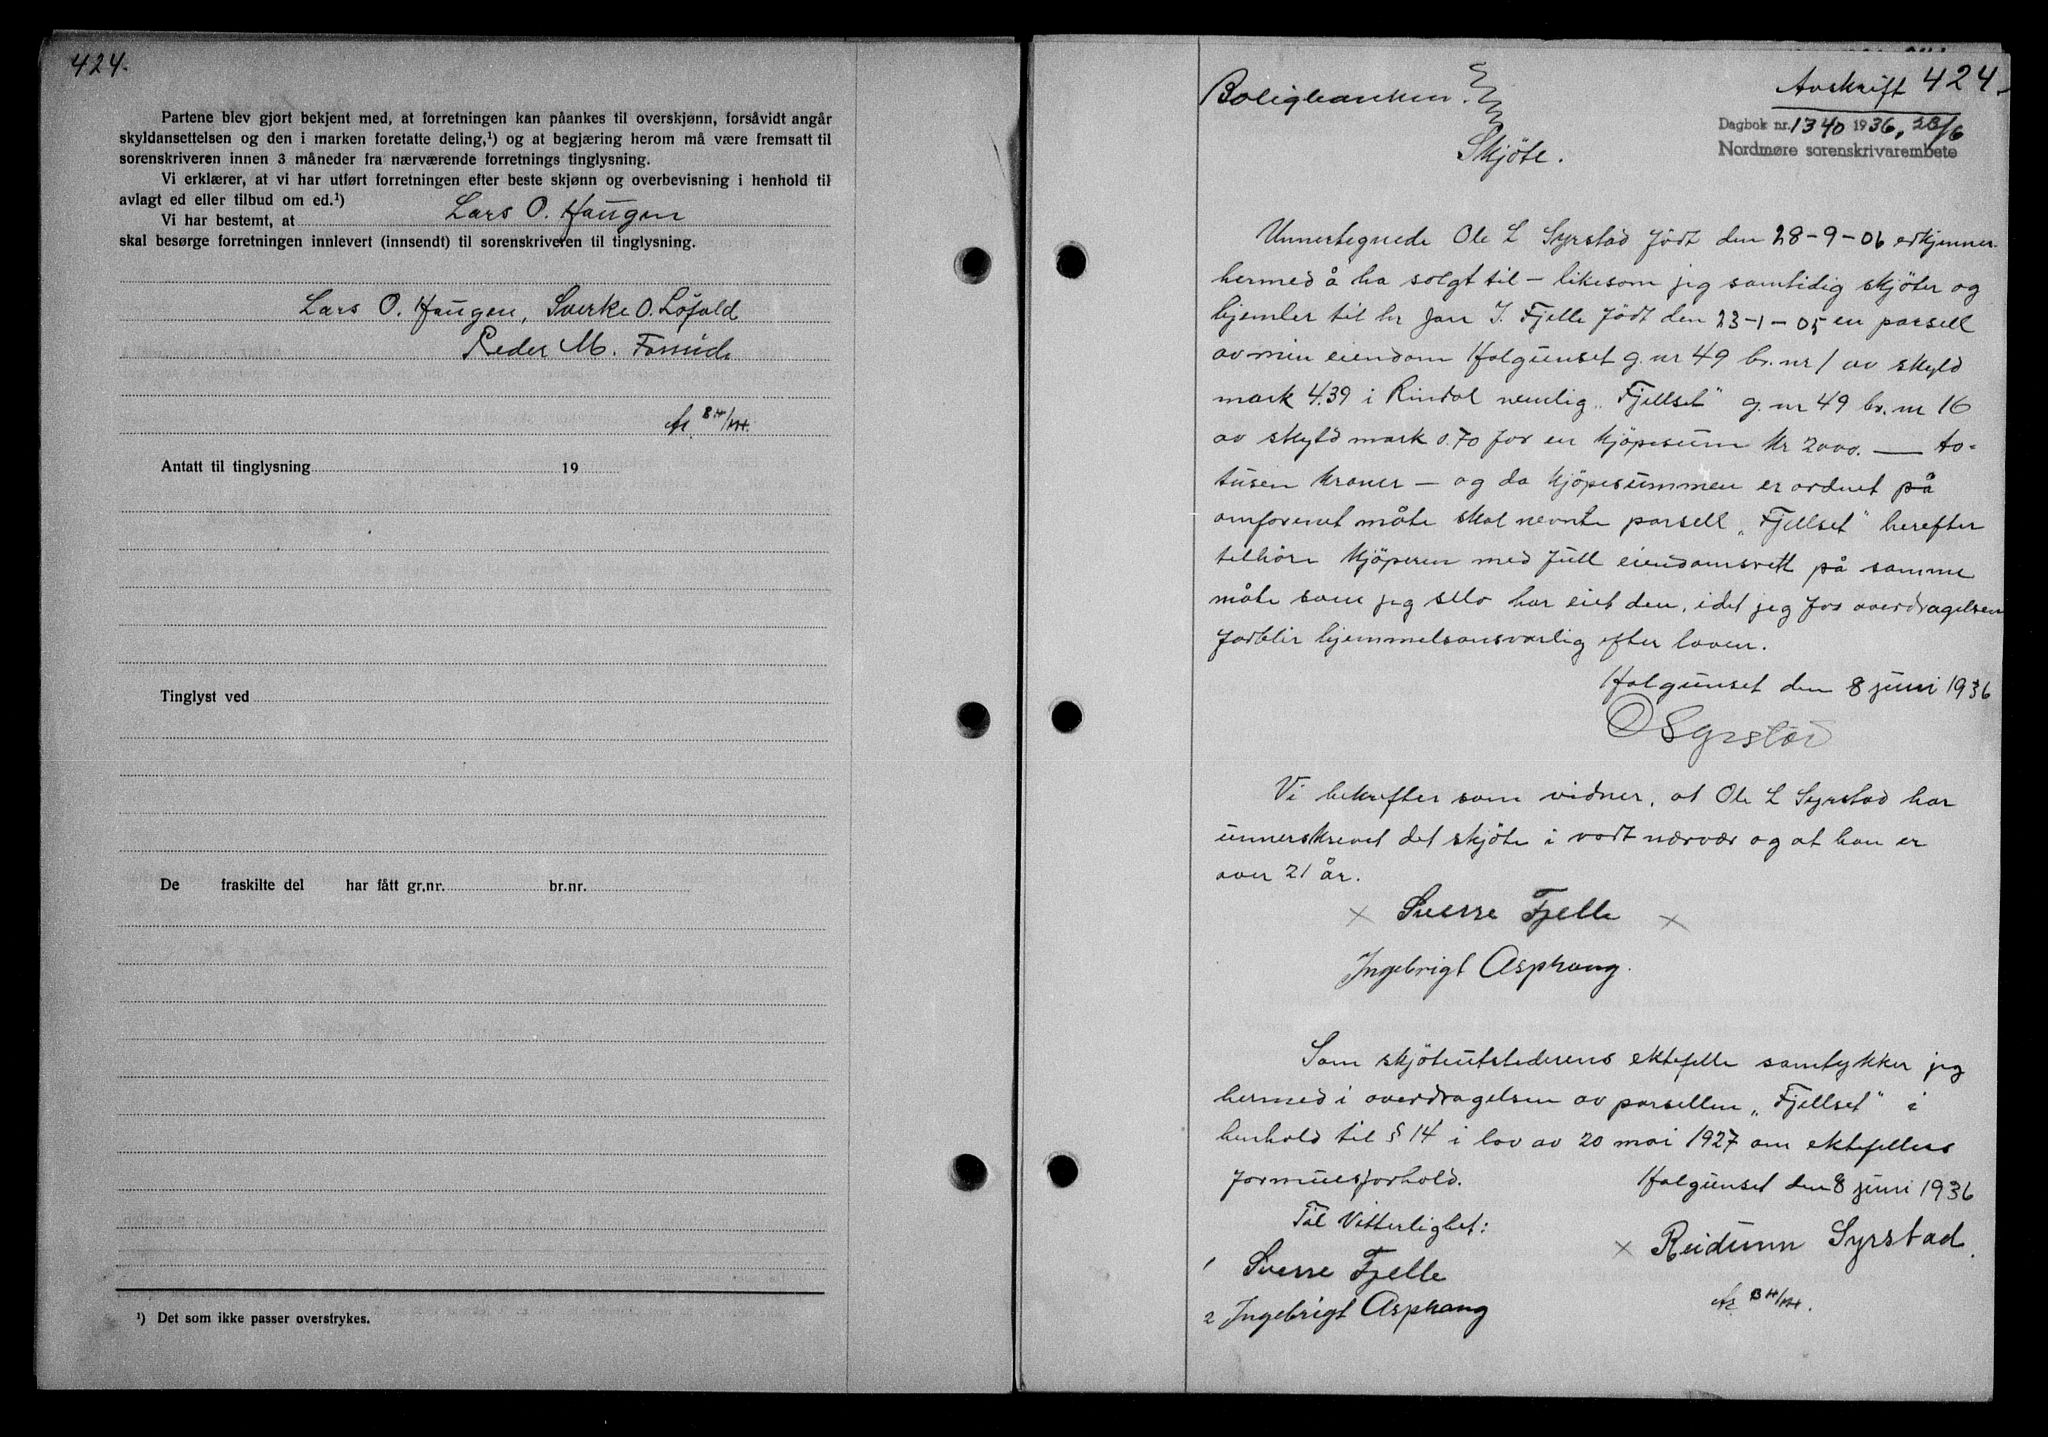 424.
Partene blev gjort bekjent med, at forretningen kan påankes til overskjønn, forsåvidt angår
skyldansettelsen og den i marken foretatte deling,¹) og at begjæring herom må være fremsatt til
sorenskriveren innen 3 måneder fra nærværende forretnings tinglysning.
Vi erklærer, at vi har utført forretningen efter beste skjønn og overbevisning i henhold til
avlagt ed eller tilbud om ed.¹)
Vi har bestemt, at Lars O. Haugen
skal besørge forretningen innlevert (innsendt) til sorenskriveren til tinglysning.
Lars O. Haugen, Sverke O. Løfald
Peder M.
Antatt til tinglysning 19
Tinglyst ved
De fraskilte del har fått gr.nr. br.nr.
¹) Det som ikke passer overstrykes.
Avskrift 424
Boligbanken.
Dagbok nr. 1340 1936, 23/6
Nordmøre sorenskrivarembete
Skjöte.
Unnertegnede Ole L Syrstad födt den 28-9-06 erkjenner
hermed å ha solgt til - likesom jeg samtidig skjöter og
hjemler til hr Jon J. Fjelle födt den 23-1-05 en parsell
av min eiendom Holgunset g.nr 49 br.nr 1 av skyld
mark 4.39 i Rindal nemlig „Fjellset" g.nr 49 br.nr 16
av skyld mark 0.70 for en kjöpesum kr 2000. — to-
tusen kroner - og da kjöpesummen er ordnet på
omforenet måte skal nevnte parsell „Fjellset" herefter
tilhöre kjöperen med full eiendomsrett på samme
måte som jeg selv har eiet den, idet jeg for overdragelsen
forblir hjemmelsansvarlig efter loven.
Holgunset den 8 juni 1936
O Syrstad
Vi bekrefter som vidner, at Ole L Syrstad har
unnerskrevet det skjöte i vort nærvær og at han er
over 21 år.
× Sverre Fjelle ×
Ingebrigt Asphaug.
Som skjöteutstederens ektefelle samtykker jeg
hermed i overdragelsen av parsellen „Fjellset" i
henhold til § 14 i lov av 20 mai 1927 om ektefellers
formuesforhold.
Holgunset den 8 juni 1936
Til Vitterlighet:
× Reidunn Syrstad.
1 Sverre Fjelle
2 Ingebrigt Asphaug